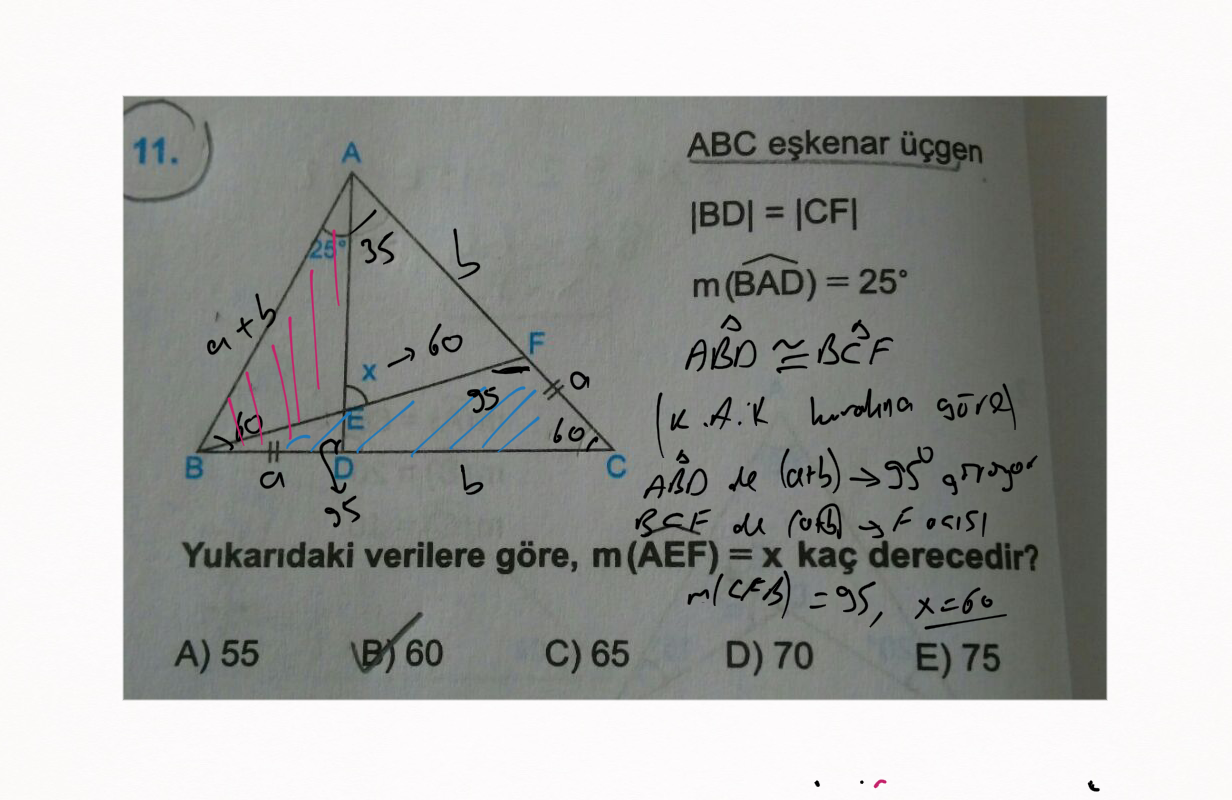 11.
ABC eşkenar üçgen
|BD| = |CF|
m(BAD) = 25°
A
25°
35
b
a + b
x → 60
F
a
95
60
E
60
B
a
D
b
C
95
ABD ≅ BCF
(K.A.K kuralına göre)
ABD de (a+b) → 95° görüyor
BCF de (a+b) → F açısı
Yukarıdaki verilere göre, m(AEF) = x kaç derecedir?
m(CFB) = 95, x=60
A) 55
B) 60
C) 65
D) 70
E) 75